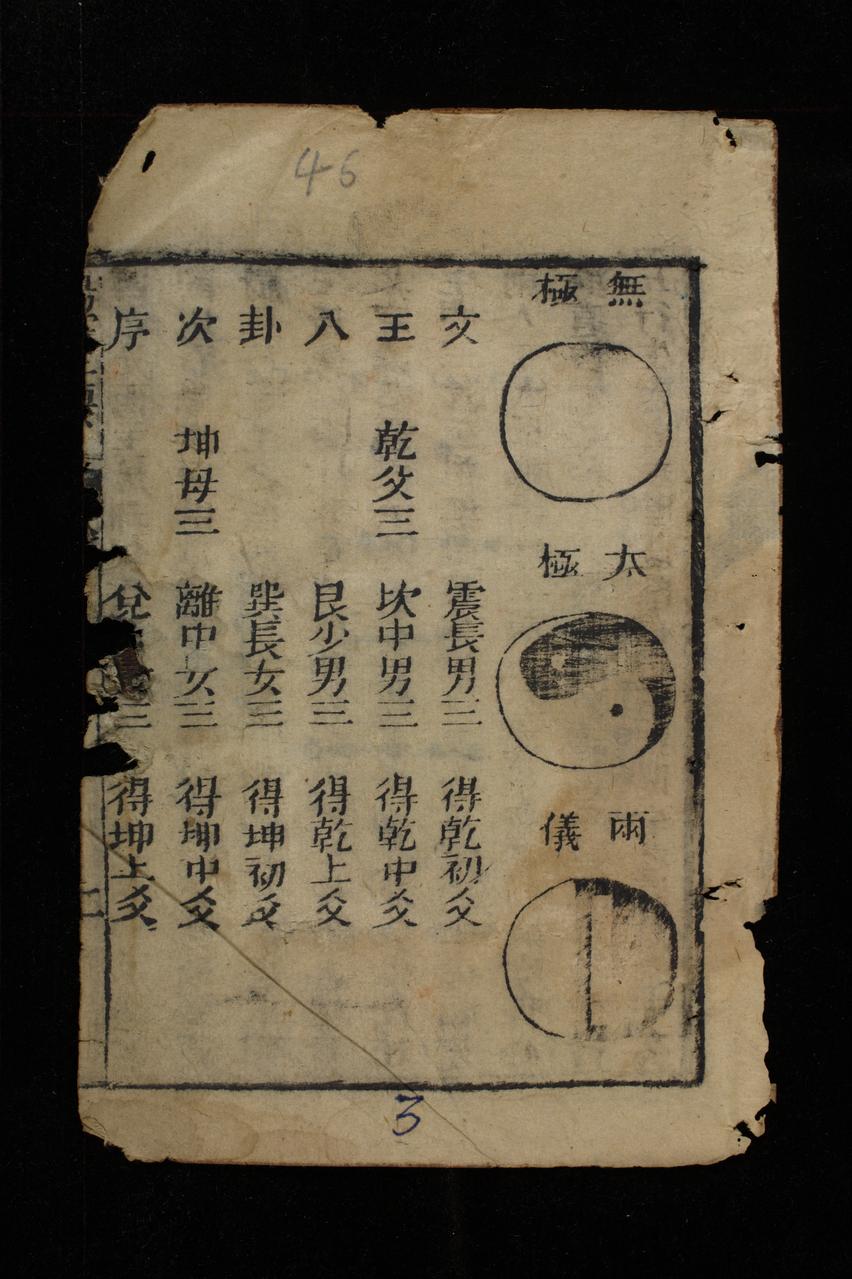 46
無極
太極
兩儀
文王八卦次序
乾父三
坤母三
震長男三
坎中男三
艮少男三
巽長女三
離中女三
兌三
得乾初爻
得乾中爻
得乾上爻
得坤初爻
得坤中爻
得坤上爻
3